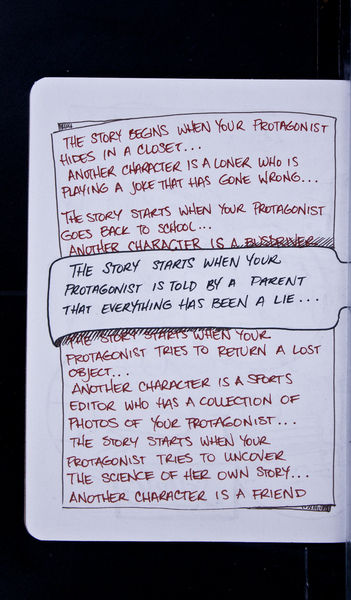 THE STORY BEGINS WHEN YOUR PROTAGONIST
HIDES IN A CLOSET...
ANOTHER CHARACTER IS A LONER WHO IS
PLAYING A JOKE THAT HAS GONE WRONG...
THE STORY STARTS WHEN YOUR PROTAGONIST
GOES BACK TO SCHOOL...
ANOTHER CHARACTER IS A BUSDRIVER
THE STORY STARTS WHEN YOUR
PROTAGONIST IS TOLD BY A PARENT
THAT EVERYTHING HAS BEEN A LIE...
THE STORY STARTS WHEN YOUR
PROTAGONIST TRIES TO RETURN A LOST
OBJECT...
ANOTHER CHARACTER IS A SPORTS
EDITOR WHO HAS A COLLECTION OF
PHOTOS OF YOUR PROTAGONIST...
THE STORY STARTS WHEN YOUR
PROTAGONIST TRIES TO UNCOVER
THE SCIENCE OF HER OWN STORY...
ANOTHER CHARACTER IS A FRIEND